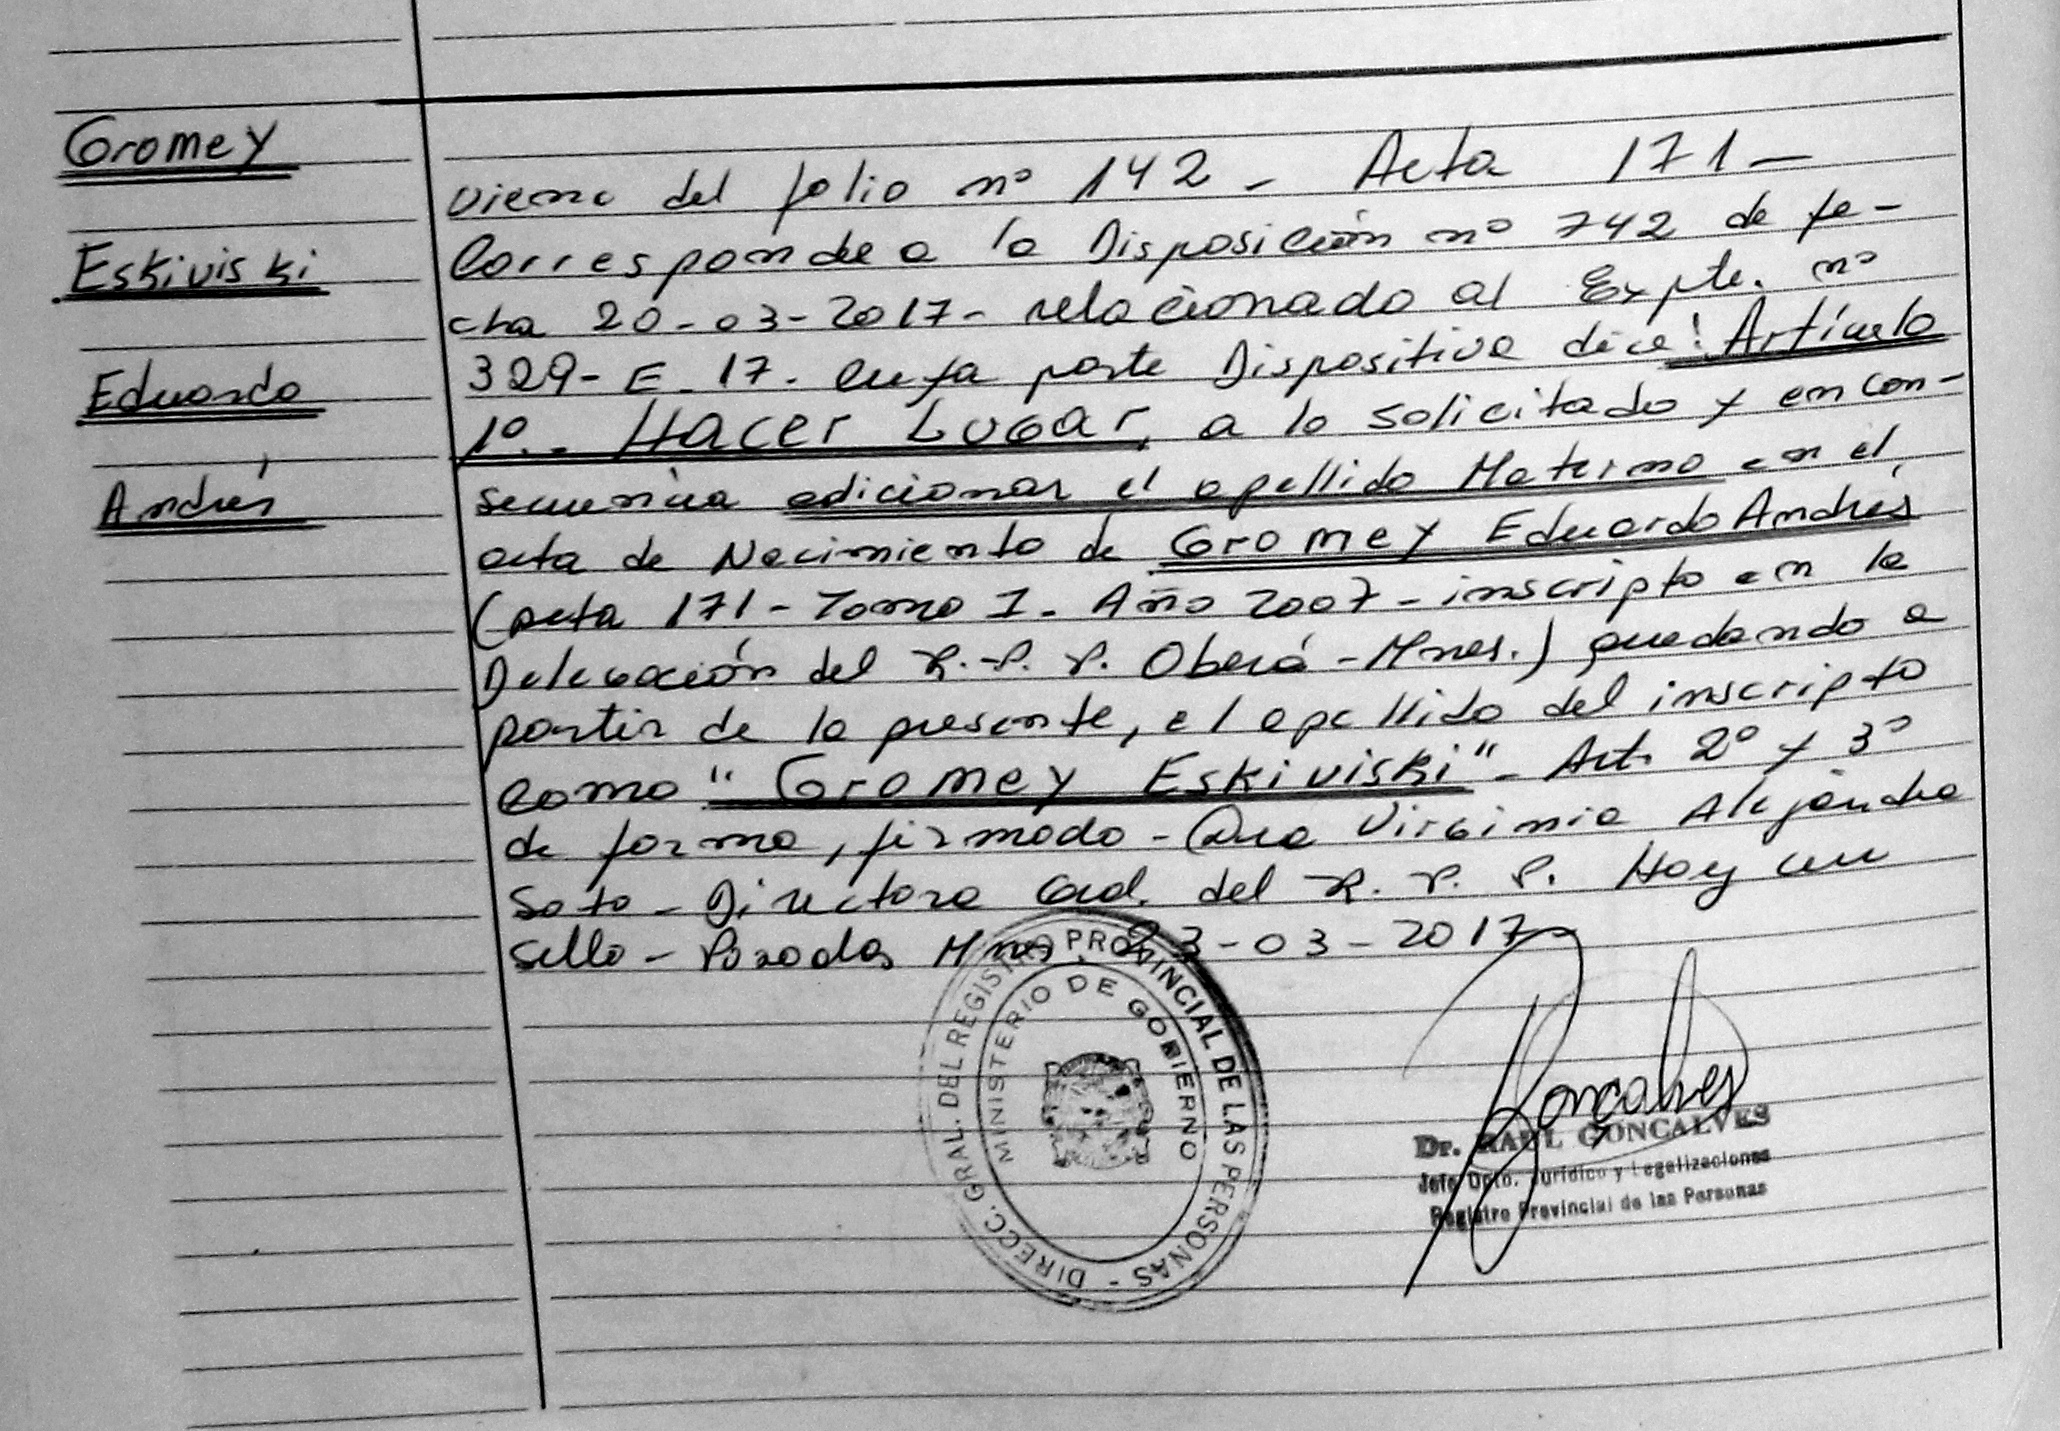 Gromey
Eskiviski
Eduardo
Andrés
Viene del folio nº 142 - Acta 171 -
Corresponde a la Disposición nº 742 de fe-
cha 20-03-2017- relacionado al Expte. nº
329-E-17. Cuya parte Dispositiva dice: Artículo
1º.- Hacer Lugar, a lo solicitado y en con-
secuencia adicionar el apellido Materno en el
acta de Nacimiento de Gromey Eduardo Andrés
(acta 171 - Tomo I - Año 2007 - inscripto en la
Delegación del R. P. P. Oberá - Mnes.) quedando a
partir de la presente, el apellido del inscripto
como "Gromey Eskiviski" - Art. 2º y 3º
de forma, firmado - Dra Virginia Alejandra
Soto - Directora Gral. del R. P. P. Hay un
sello - Posadas Mnes 23-03-2017
DIRECC. GRAL. DEL REGISTRO PROVINCIAL DE LAS PERSONAS -
MINISTERIO DE GOBIERNO
Gonçalves
Dr. RAUL GONCALVES
Jefe Dpto. Jurídico y Legalizaciones
Registro Provincial de las Personas